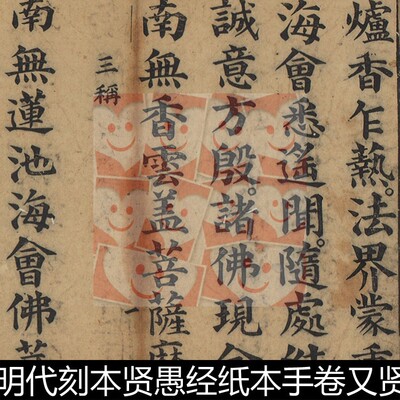 爐香乍熱。法界蒙
海會悉遙聞。隨處
誠意方殷。諸佛現
南無香雲蓋菩薩摩
三稱
南無蓮池海會佛
明代刻本贤愚经纸本手卷又贤